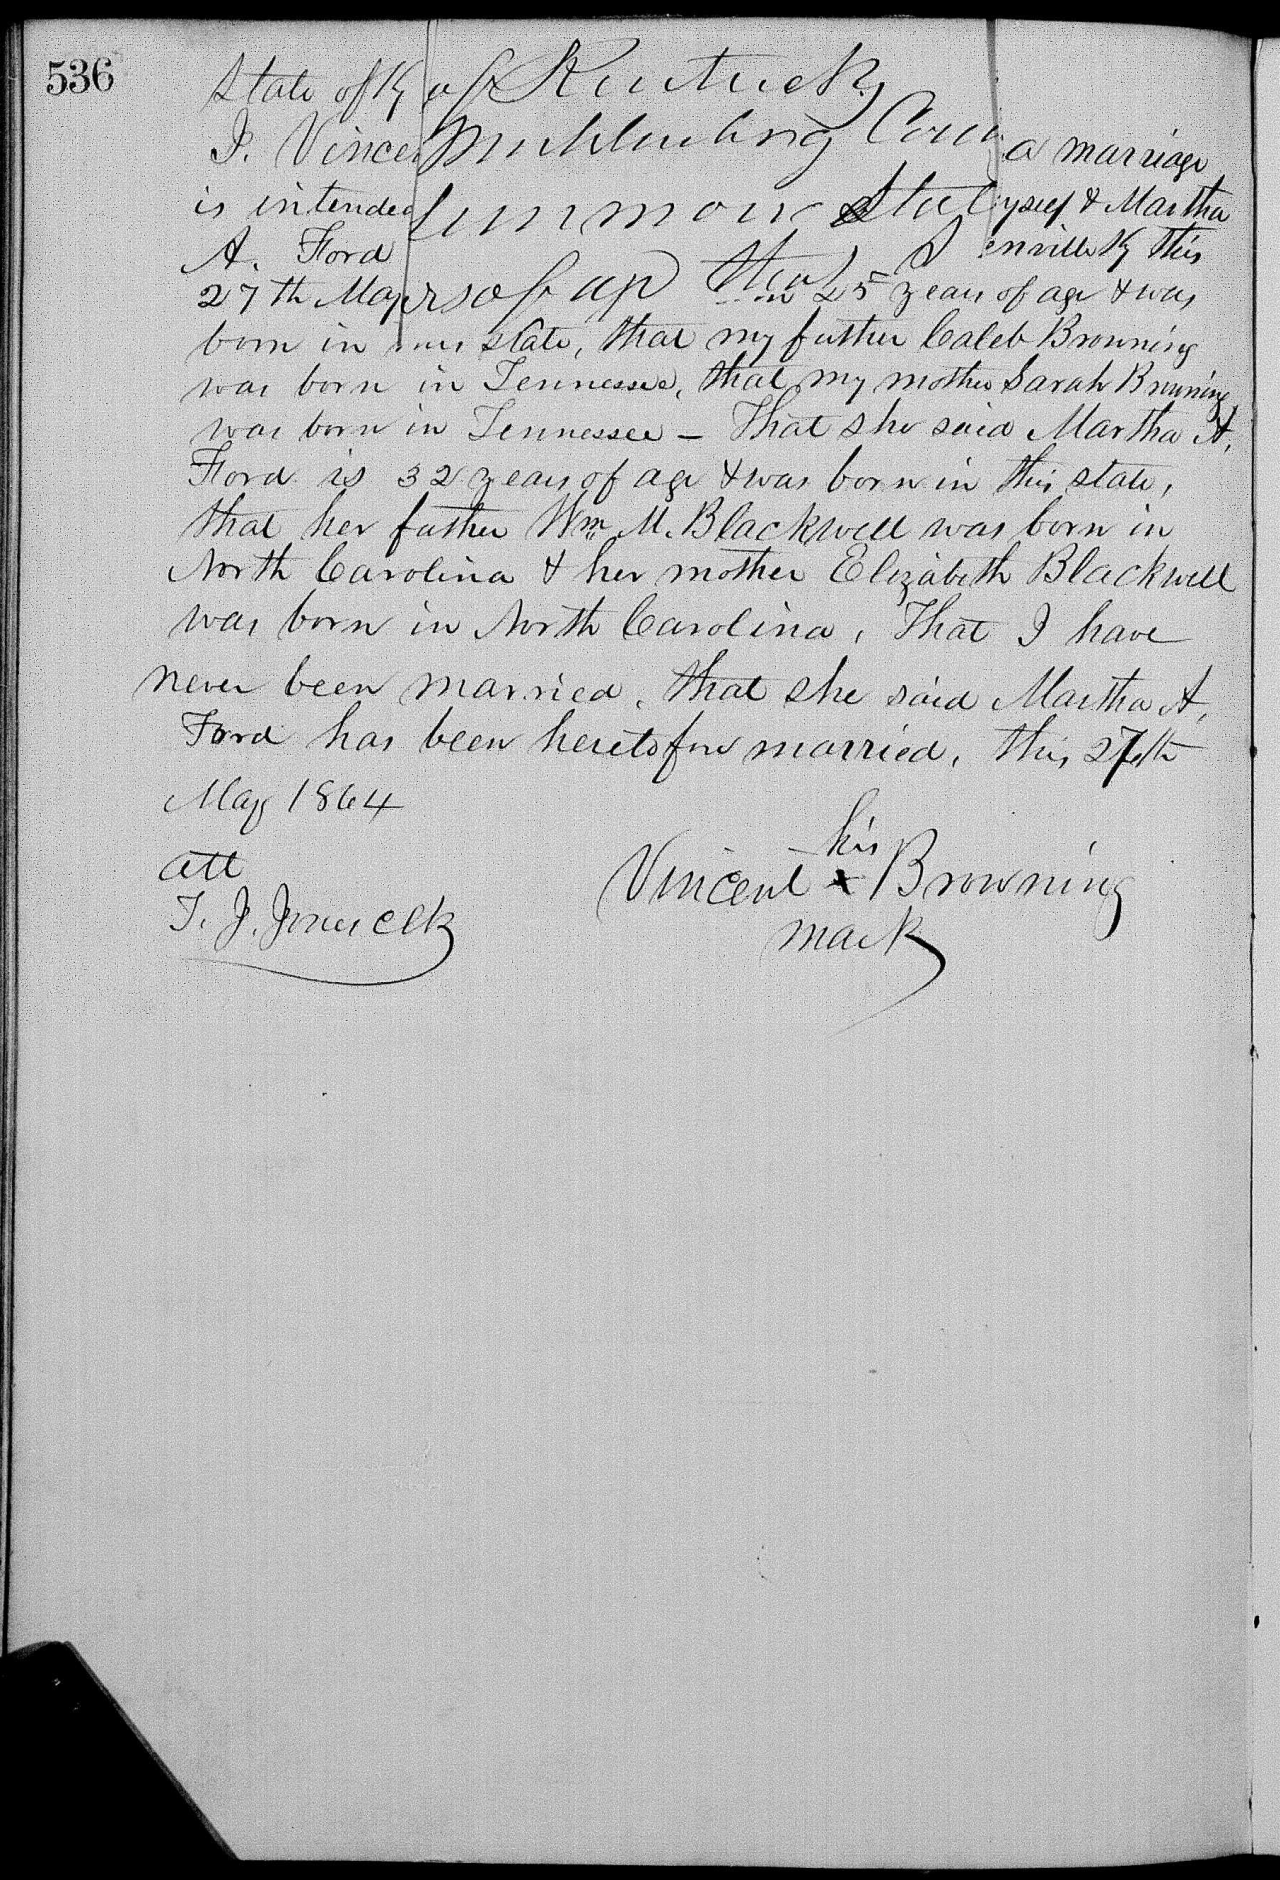 536
State of Ky of Kentucky
I. Vince Muhlenberg Coun a marriage
is intended Common State yself & Martha
A. Ford enville Ky this
27th May rs of ap 25 years of age & was
born in this state, that my father Caleb Browning
was born in Tennessee, that my mother Sarah Browning
was born in Tennessee – That she said Martha A.
Ford is 32 years of age & was born in this state,
that her father Wm M. Blackwell was born in
North Carolina & her mother Elizabeth Blackwell
was born in North Carolina, That I have
never been married, that she said Martha A.
Ford has been heretofore married, this 27th
May 1864
att
T. J. Jones Clk
his
Vincent x Browning
mark